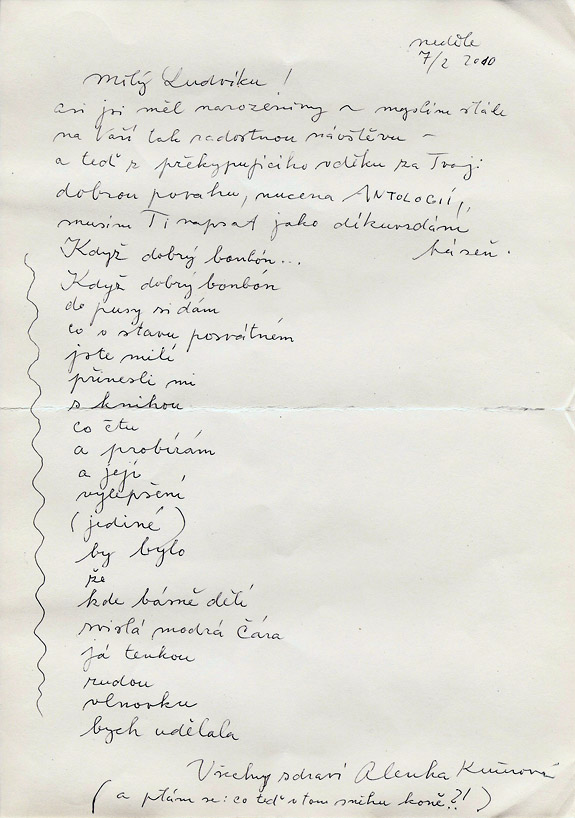 neděle
7/2 2010
Milý Ludvíku!
asi jsi měl narozeniny a myslím stále
na Vaší tak radostnou návštěvu –
a teď z překypujícího vděku za Tvoji
dobrou povahu, nucena ANTOLOGIÍ,
musím Ti napsat jako díkuvzdání
báseň.
Když dobrý bonbón...
Když dobrý bonbón
do pusy si dám
co v stavu posvátném
jste milí
přinesli mi
s knihou
co čtu
a probírám
a její
vylepšení
(jediné)
by bylo
že
kde básně dělí
svislá modrá čára
já tenkou
rudou
vlnovku
bych udělala
Všechny zdraví Alenka
(a ptám se: co teď v tom sněhu koně?!)